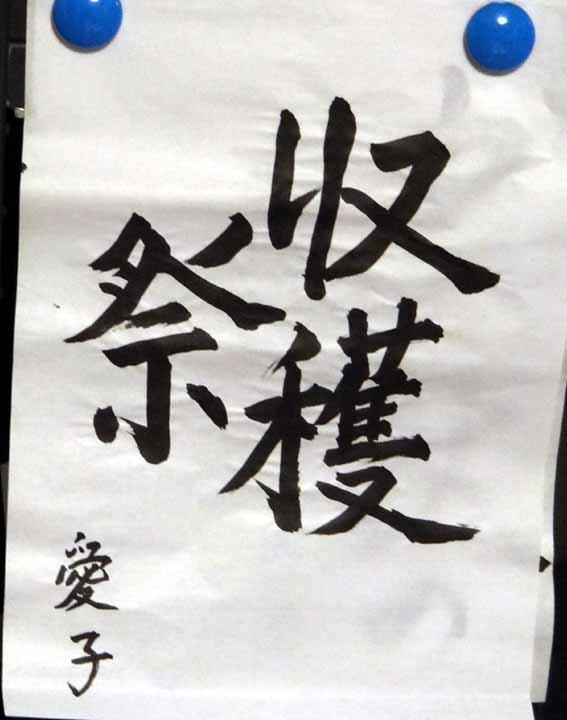 収穫
祭
愛子